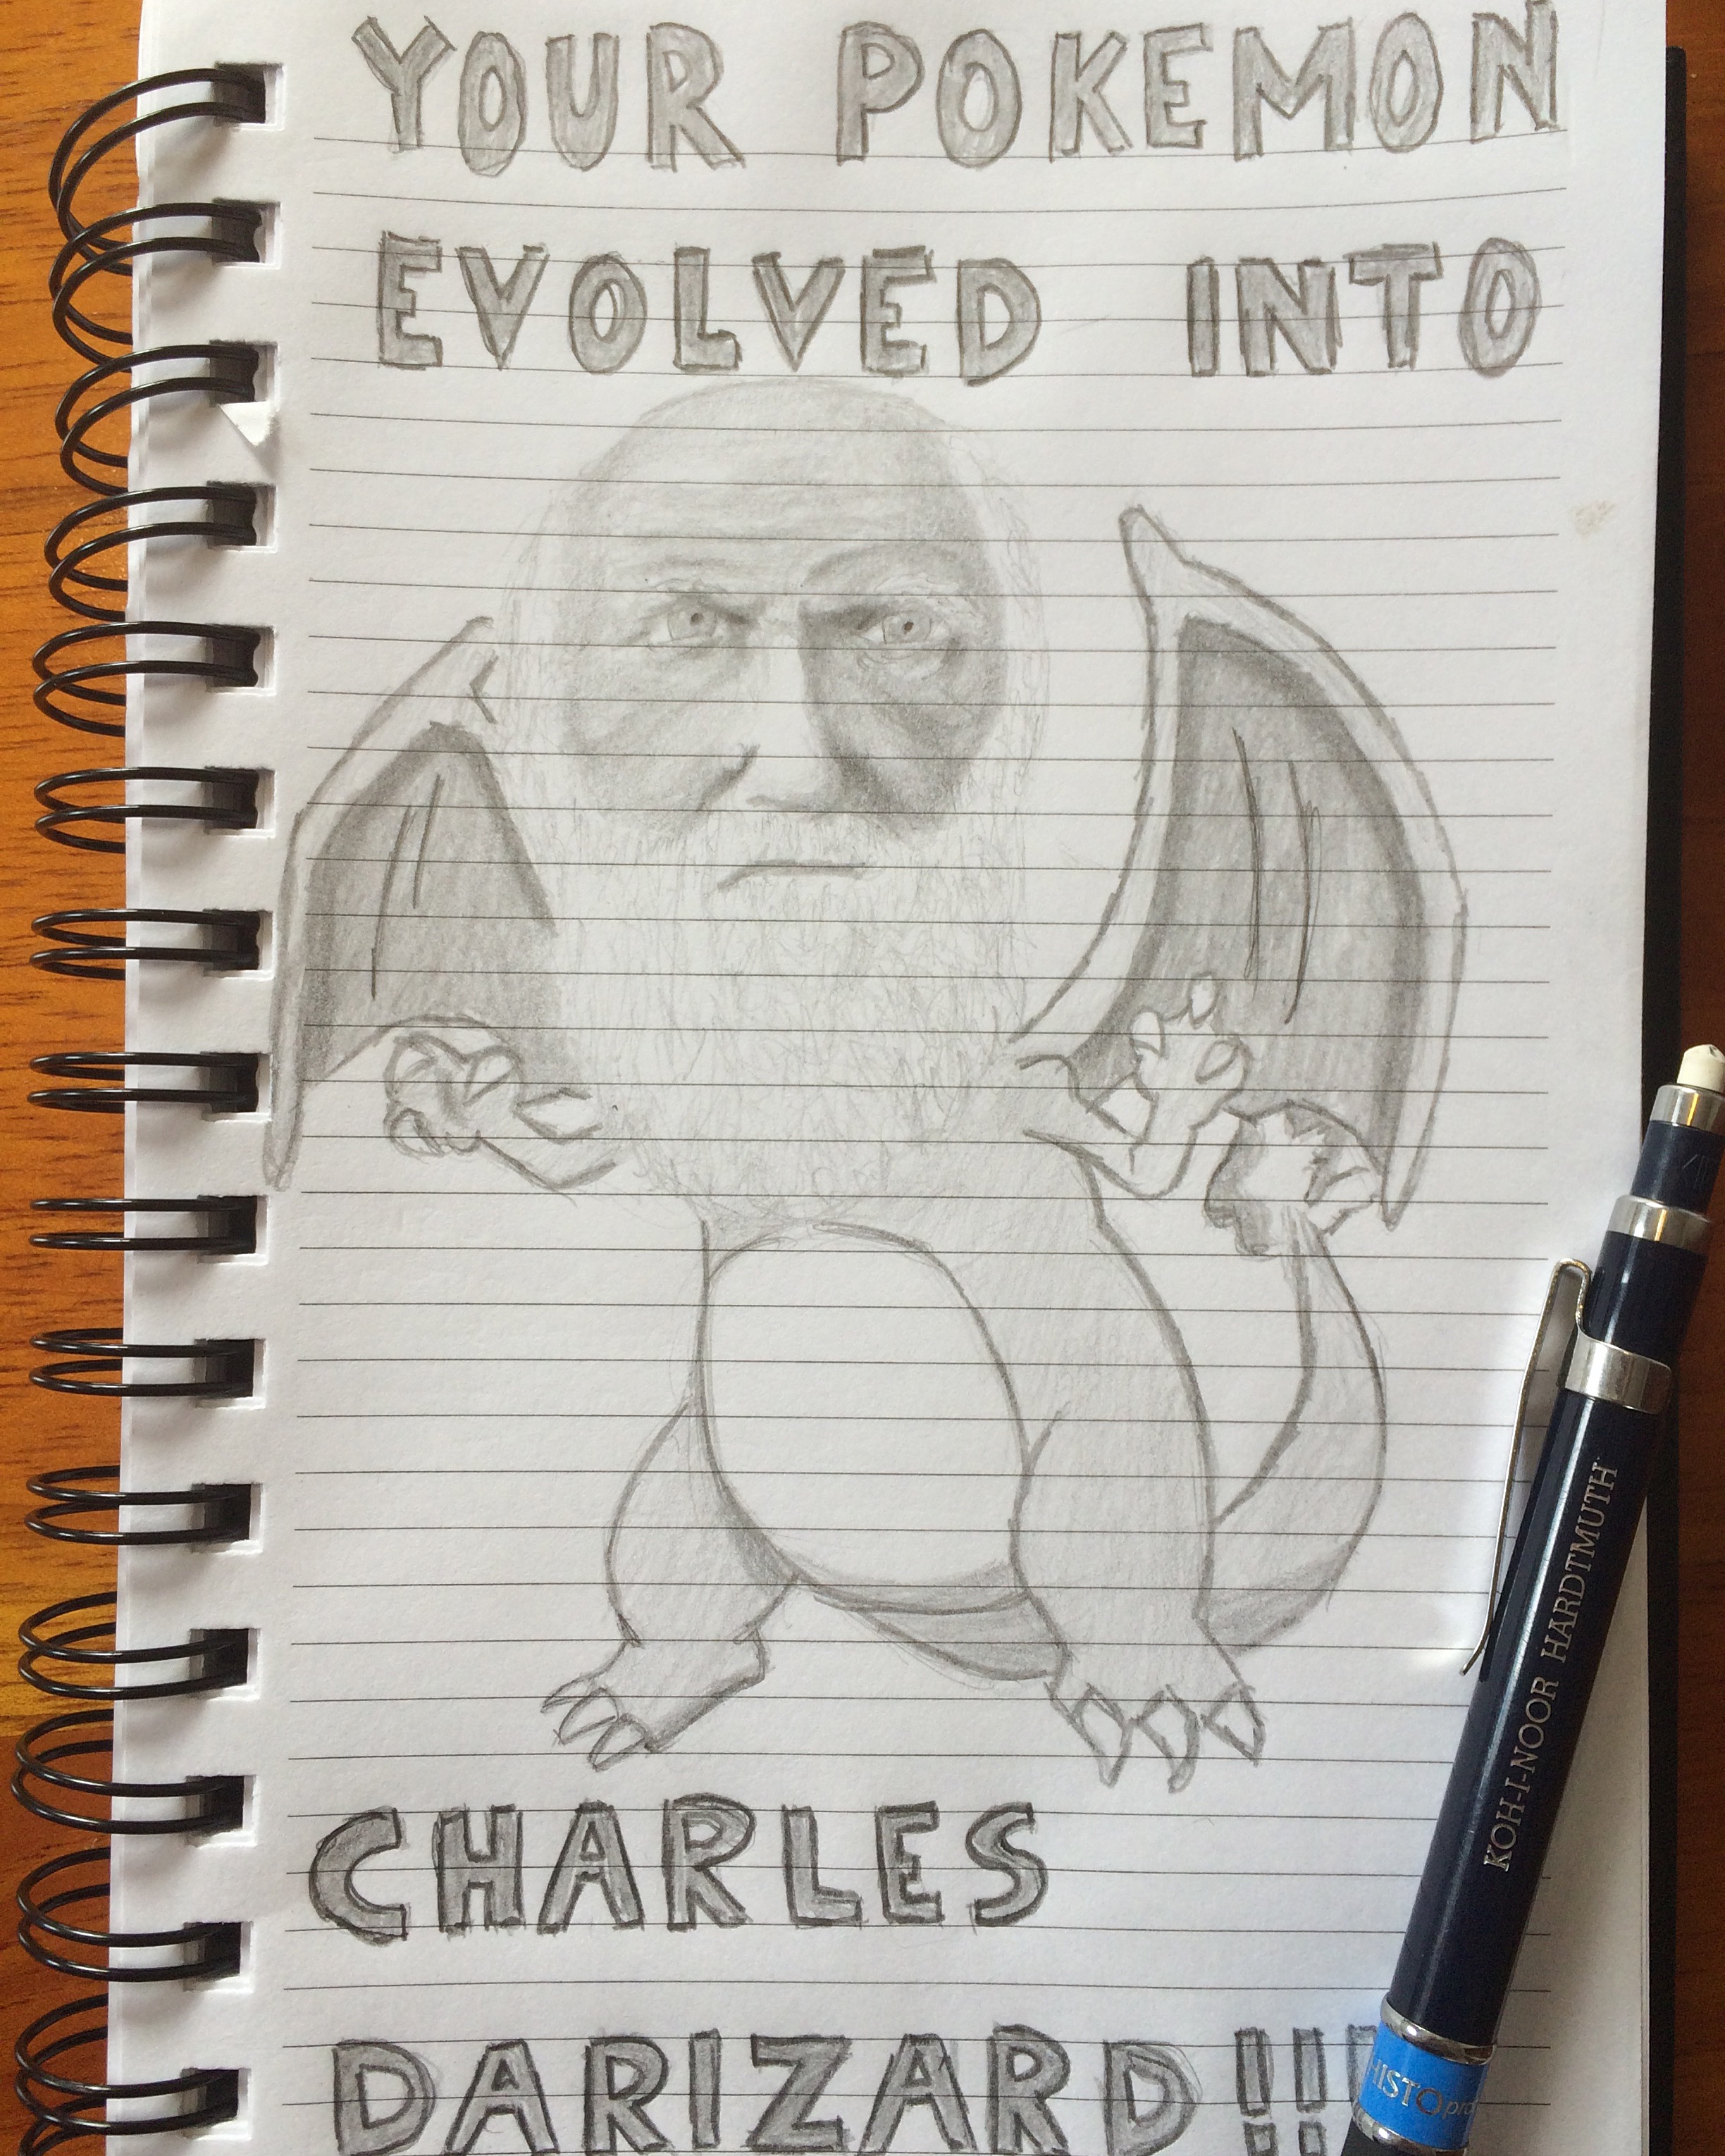 YOUR POKEMON
EVOLVED INTO
CHARLES
DARIZARD!!
KOH-I-NOOR HARDTMUTH
HISTOpro